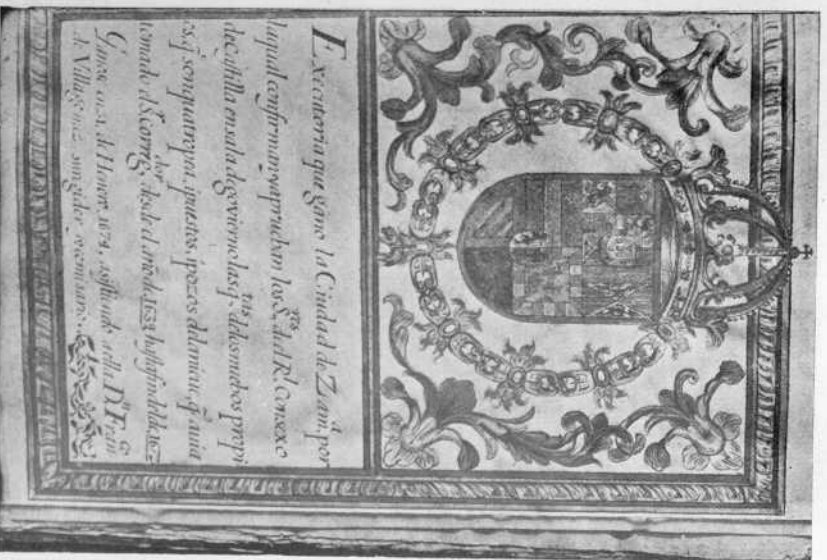 Executoria que gano la Ciudad de Zam.a por
laqual confirman yaprueban los S.res del R.l Consexo
de castilla en sala de govierno las q.tas de los medios propi
os, q̃ son quatropea, ipuestos, ipozos del amieue, q̃ auia
tomado el S.corrig.dor desde el año de 1653 hasta fin del de 167
Ganose en 31. de Henero. 1674, asistiendo a ella D.n Fran.co
de Villagomez su regidor y comisario.